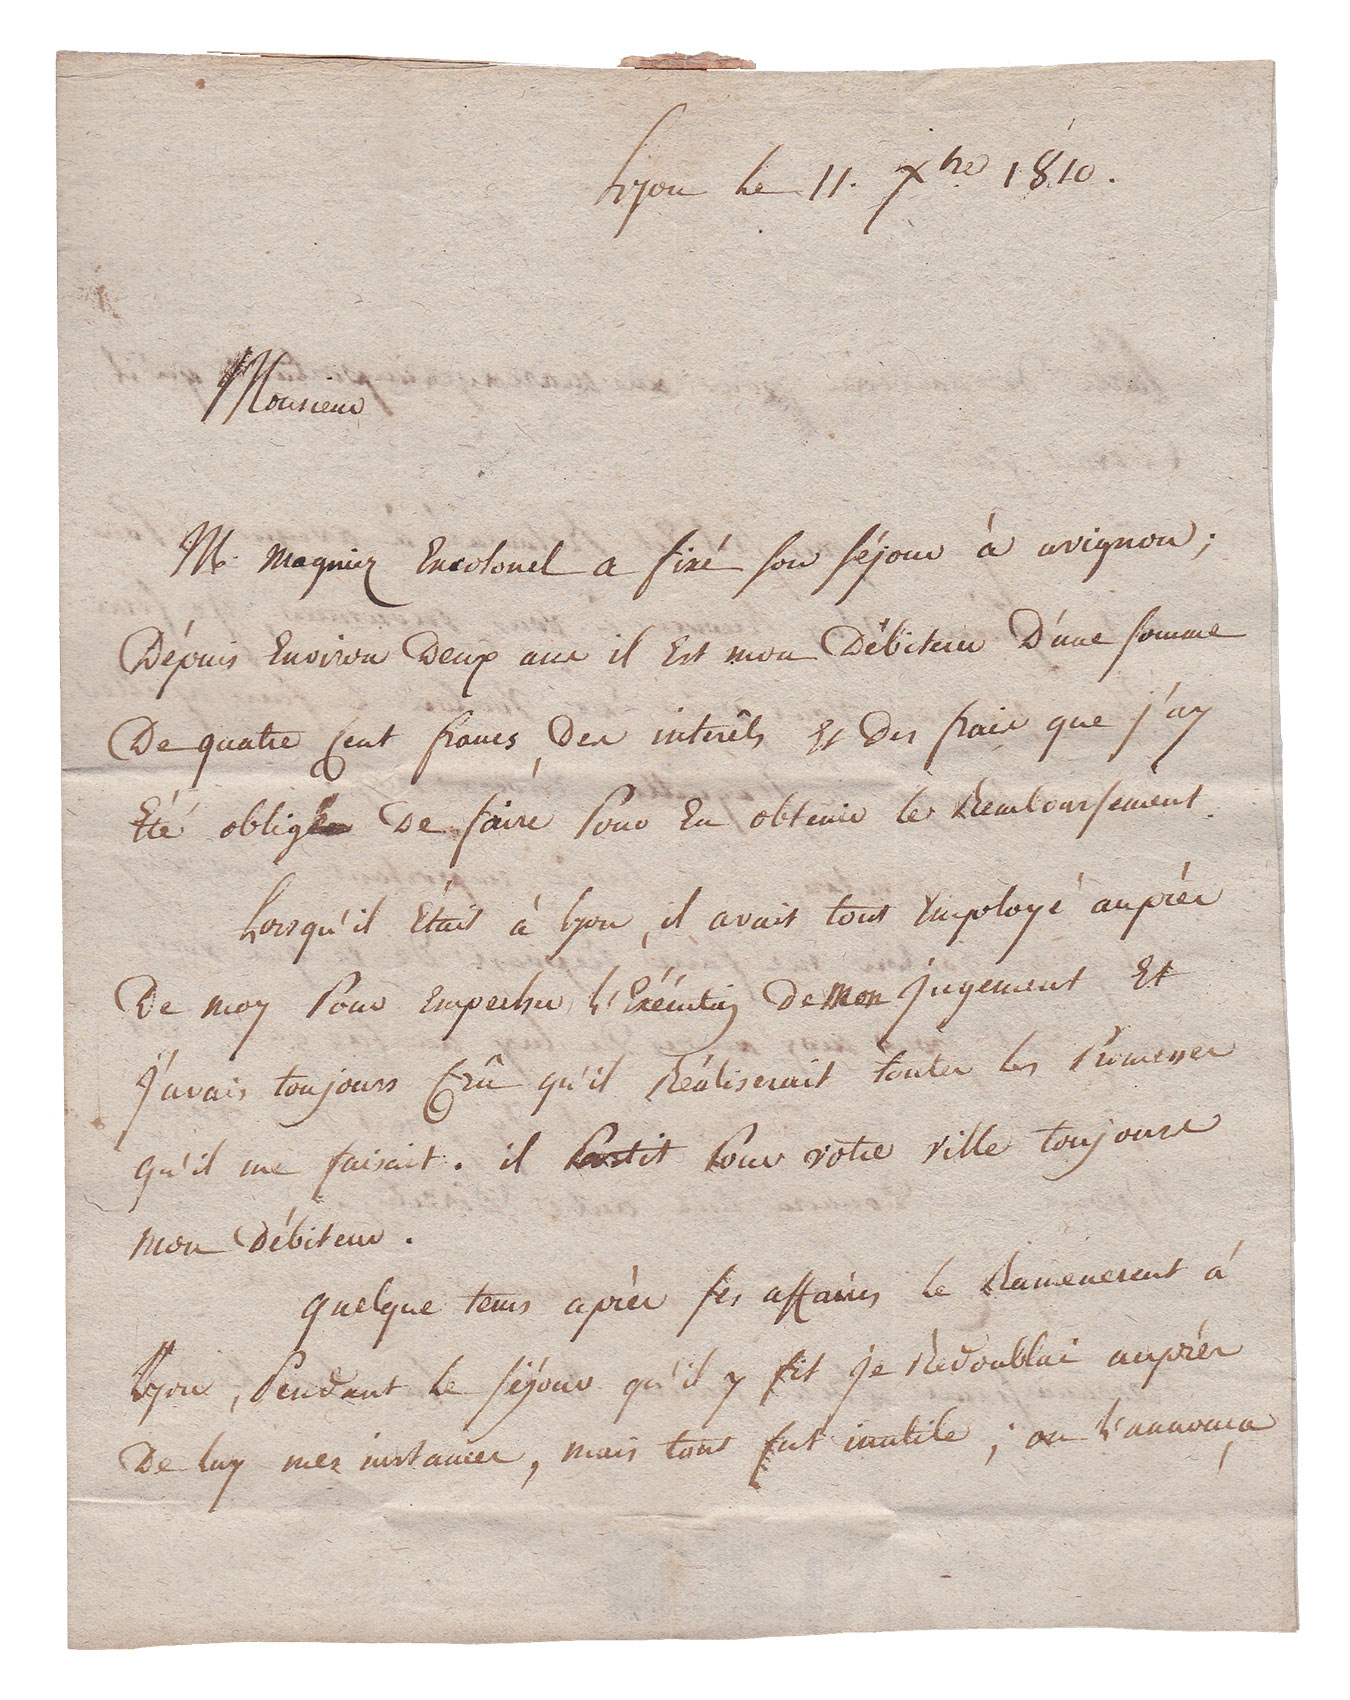 Lyon le 11. Xbre 1810.
Monsieur
M. magniez Encolonel a fixé son séjour à avignon;
Dépuis Environ Deux ans il Est mon Débiteur D'une somme
De quatre Cent francs, Des interêts Et Des frais que j'ay
Eté obligé De faire Pour En obtenir le Remboursement.
Lorsqu'il Était à lyon, il avait tout Employé auprès
De moy Pour Empecher l'Exécution De mon jugement Et
j'avais toujours Crû qu'il Réaliserait toutes les Promesses
qu'il me faisait. il Partit Pour votre ville toujours
mon Débiteur.
quelque tems après ses affaires le Ramenerent à
lyon, Pendant le séjour qu'il y fit je Rédoublai auprès
De luy mes instances, mais tout fut inutile; on l'annonça